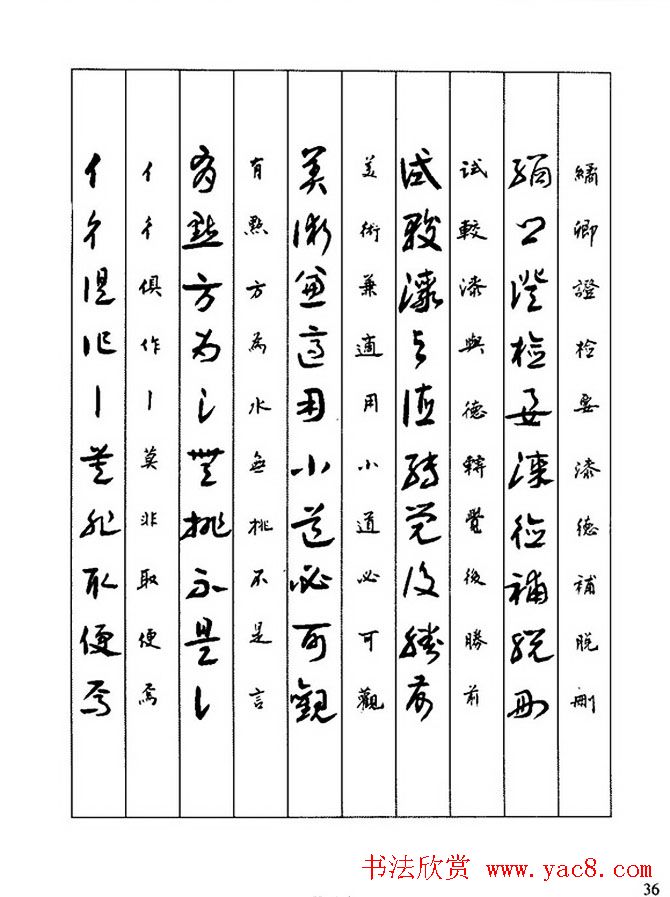 繘卿證检要漆德補脫刪
繘卿證检要漆德補脫刪
試較漆與德轉覺後勝前
試較漆與德轉覺後勝前
美術兼適用小道必可觀
美術兼適用小道必可觀
有點方為水無挑不是言
有點方為氵無挑不是讠
亻彳俱作丨莫非取便焉
亻彳俱作丨莫非取便焉
书法欣赏 www.yac8.com
36